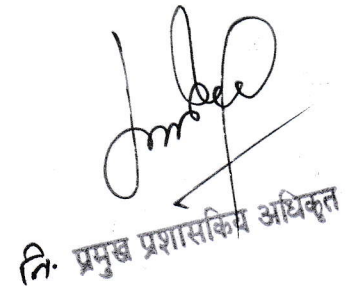 नि. प्रमुख प्रशासकिय अधिकृत